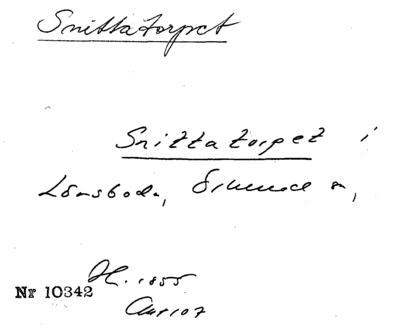 Snittatorpet
Snittatorpet i
Lönsboda, Örkened sn,
H. 1855
Nr 10342